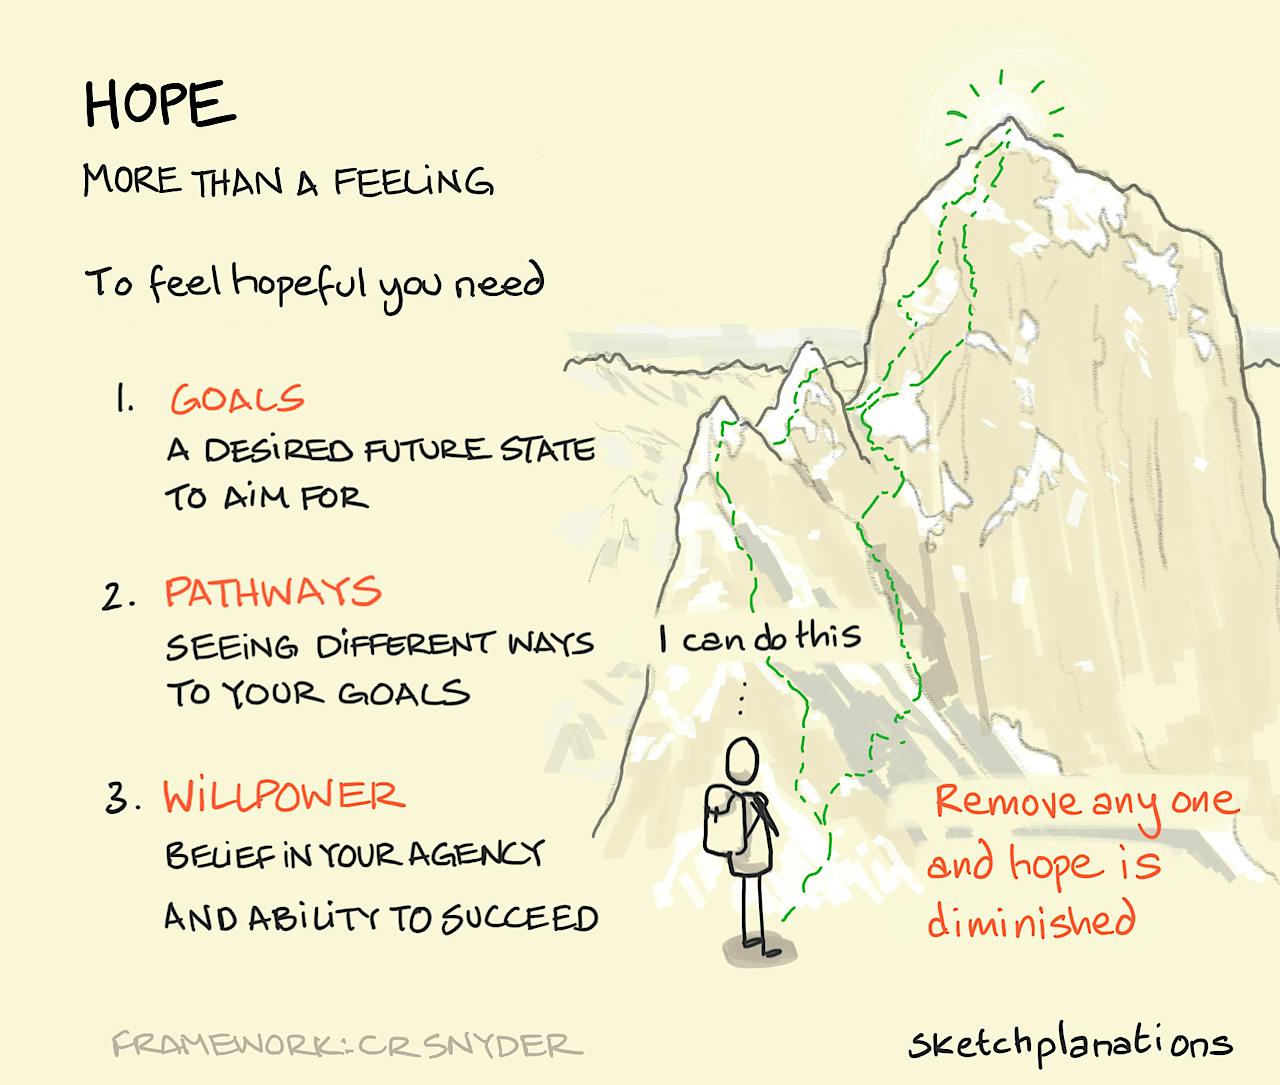 HOPE
MORE THAN A FEELING
To feel hopeful you need
1. GOALS
A DESIRED FUTURE STATE
TO AIM FOR
2. PATHWAYS
SEEING DIFFERENT WAYS
TO YOUR GOALS
3. WILLPOWER
BELIEF IN YOUR AGENCY
AND ABILITY TO SUCCEED
I can do this
Remove any one
and hope is
diminished
FRAMEWORK: CR SNYDER
sketchplanations